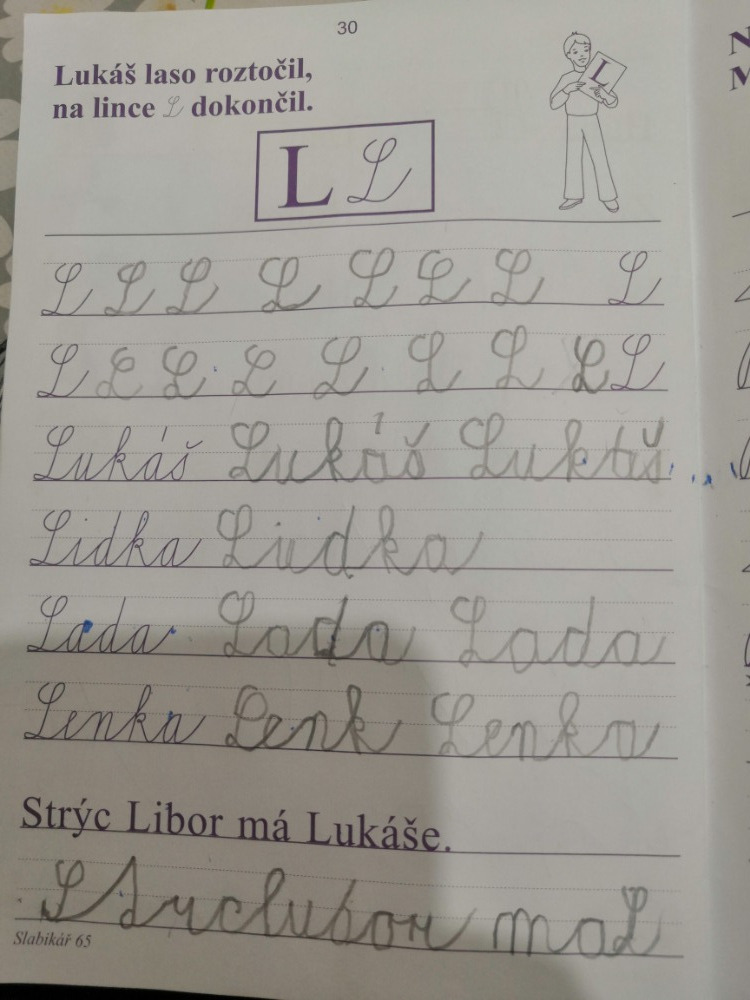 30
Lukáš laso roztočil,
na lince L dokončil.
L
L L
L L L L L L L L
L L L L L L L L L
Lukáš Lukáš Lukáš
Lidka Lidka
Lada Lada Lada
Lenka Lenk Lenka
Strýc Libor má Lukáše.
L maL
Slabikář 65
N
M